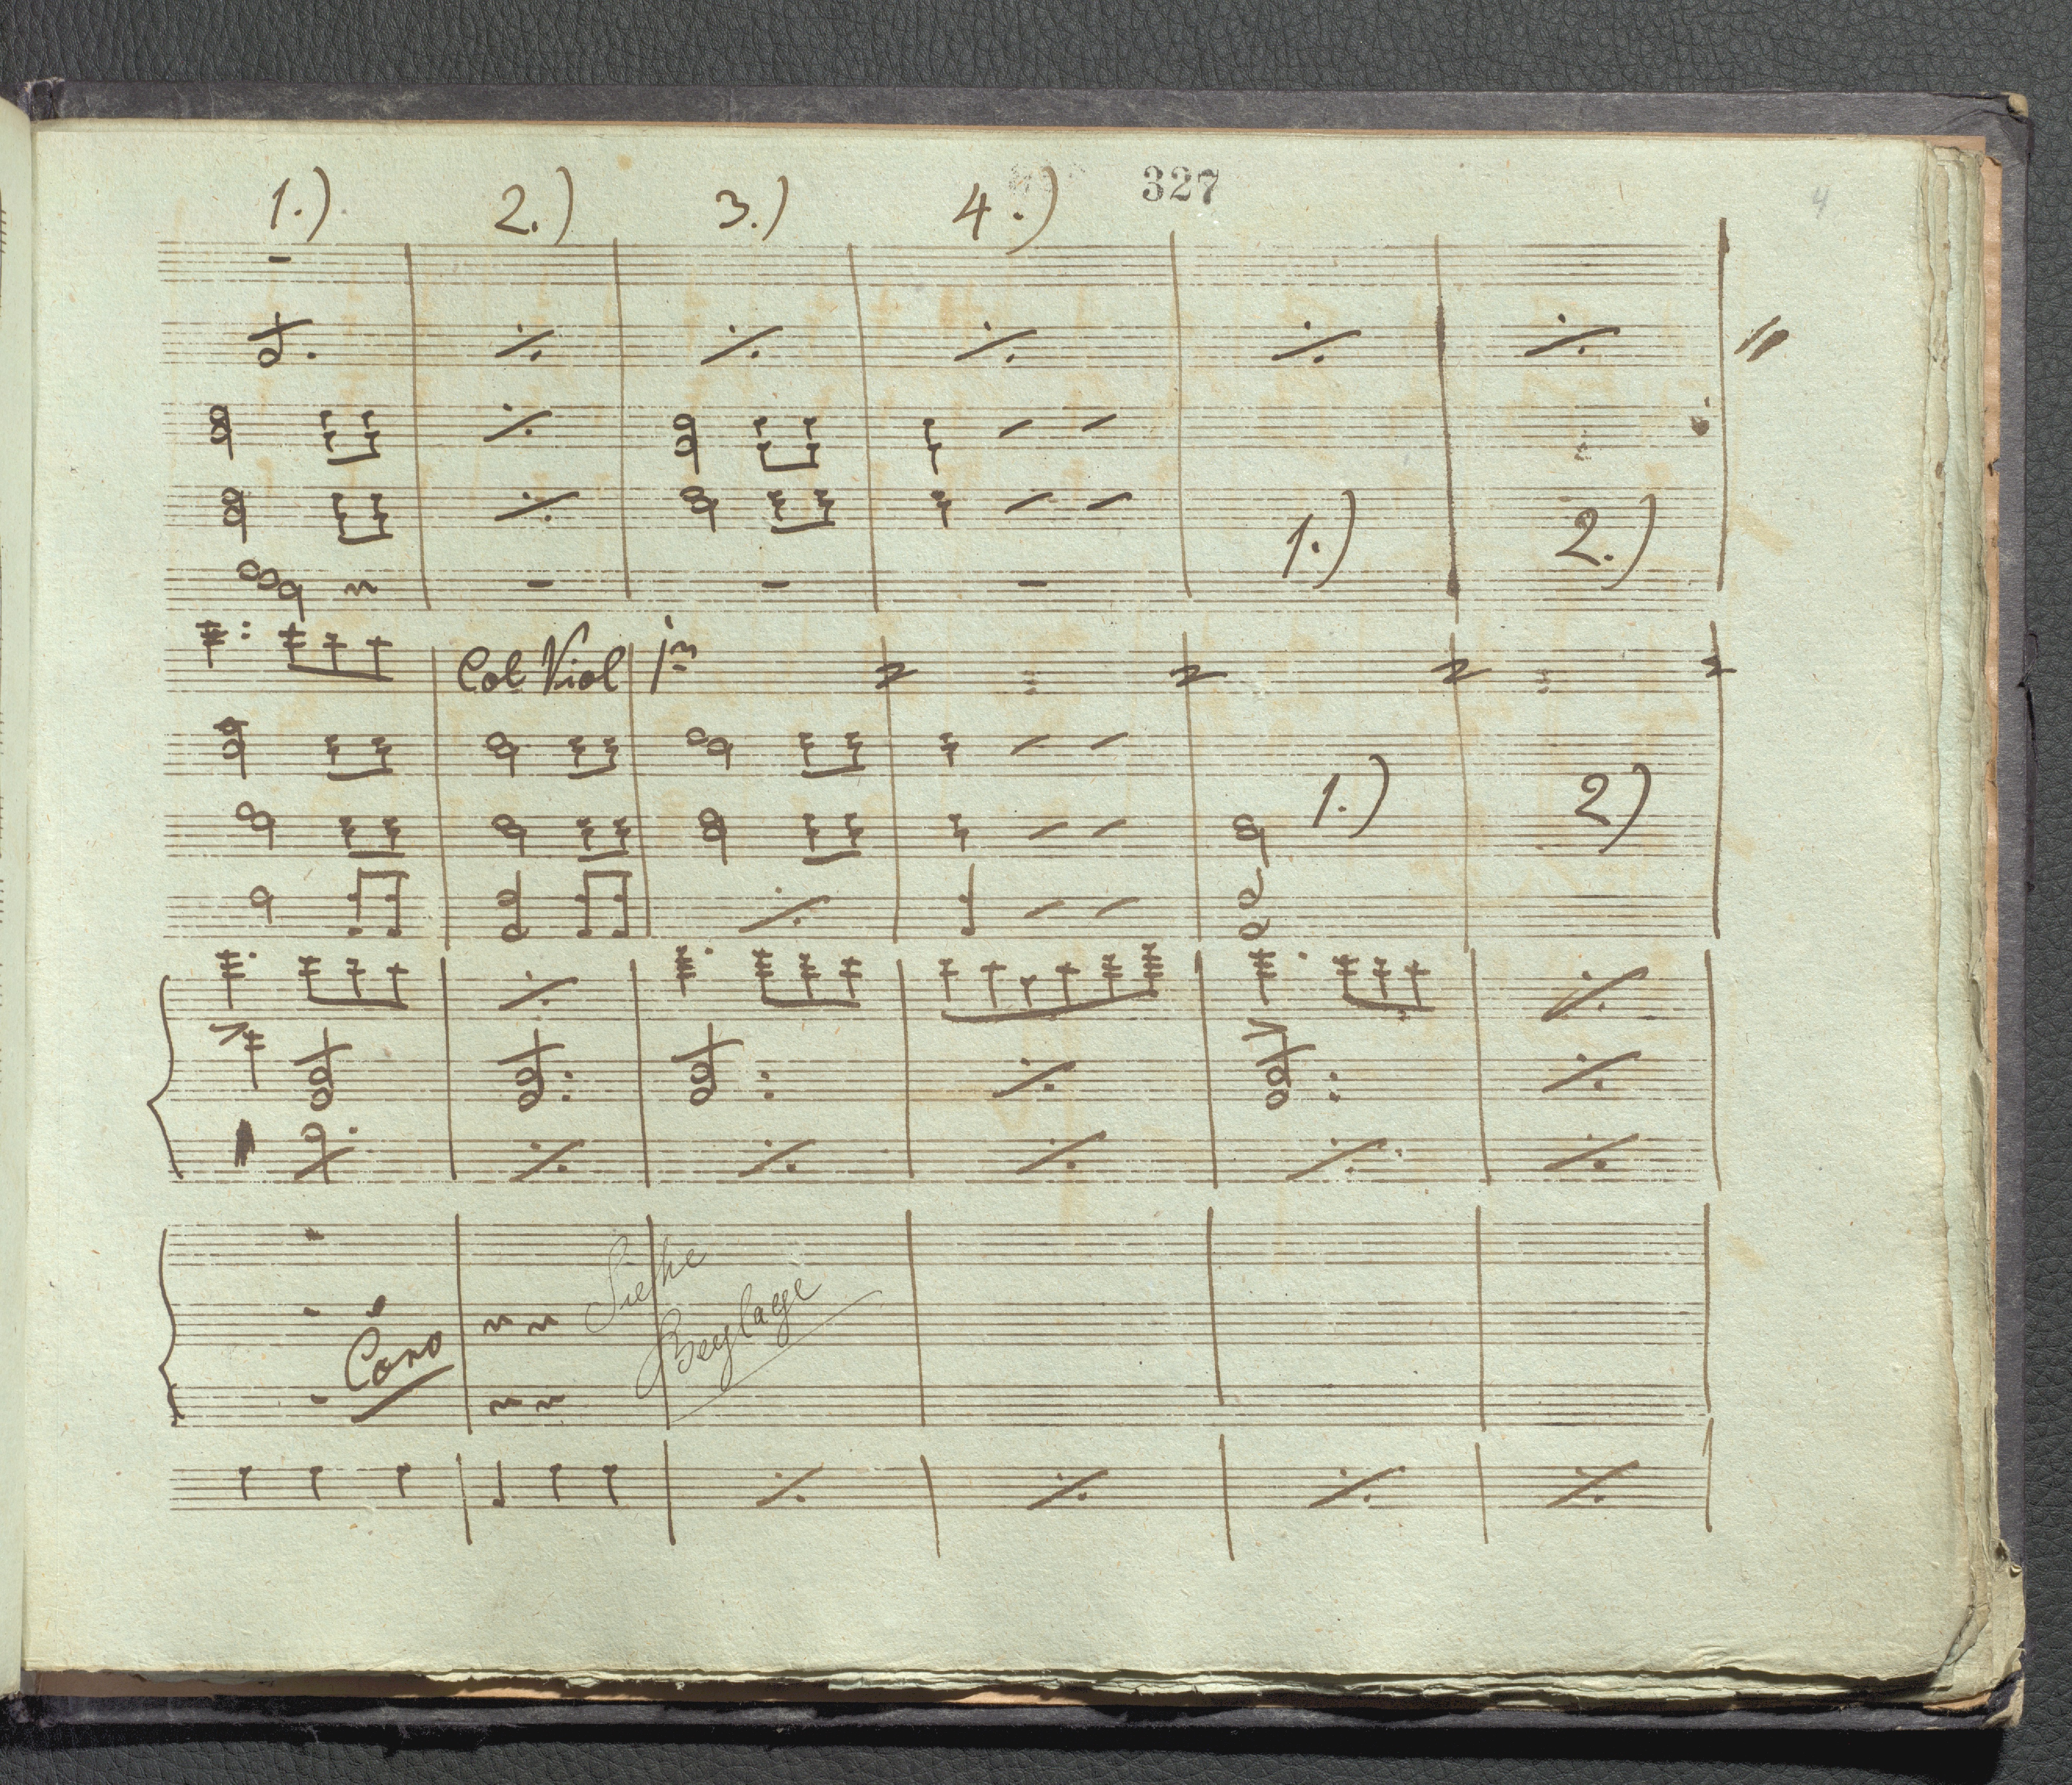 327
4
1.) 2.) 3.) 4.)
1.) 2.)
Col Viol 1m
1.) 2)
Siehe
Coro
Beylage